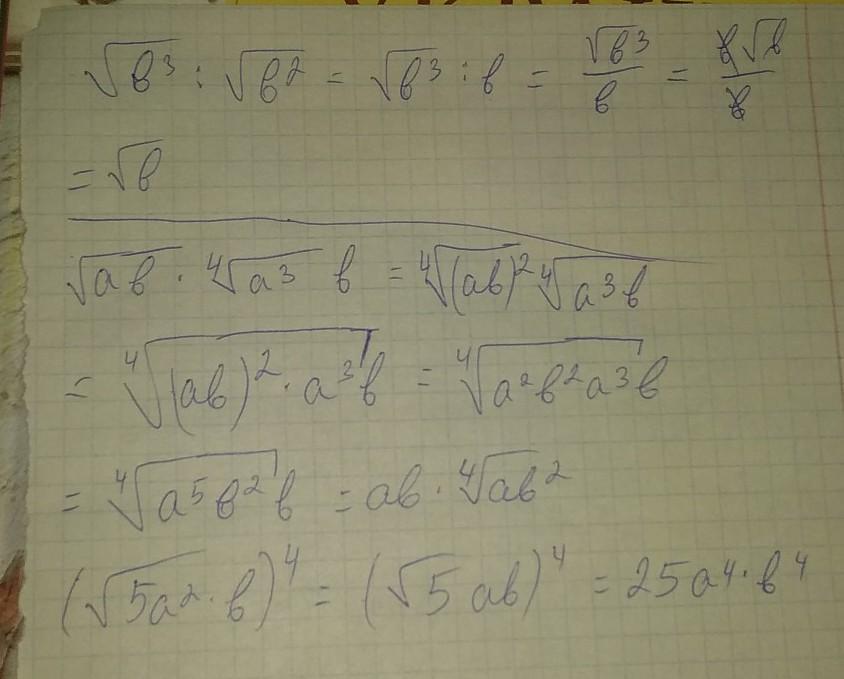 √в³ : √в² = √в³ : в = √в³/в = в√в/в
= √в
√ав · ⁴√а³ в = ⁴√(ав)² ⁴√а³в
= ⁴√(ав)² · а³в = ⁴√а²в²а³в
= ⁴√а⁵в² в = ав · ⁴√ав²
(√5а² · в)⁴ = (√5 ав)⁴ = 25а⁴ · в⁴